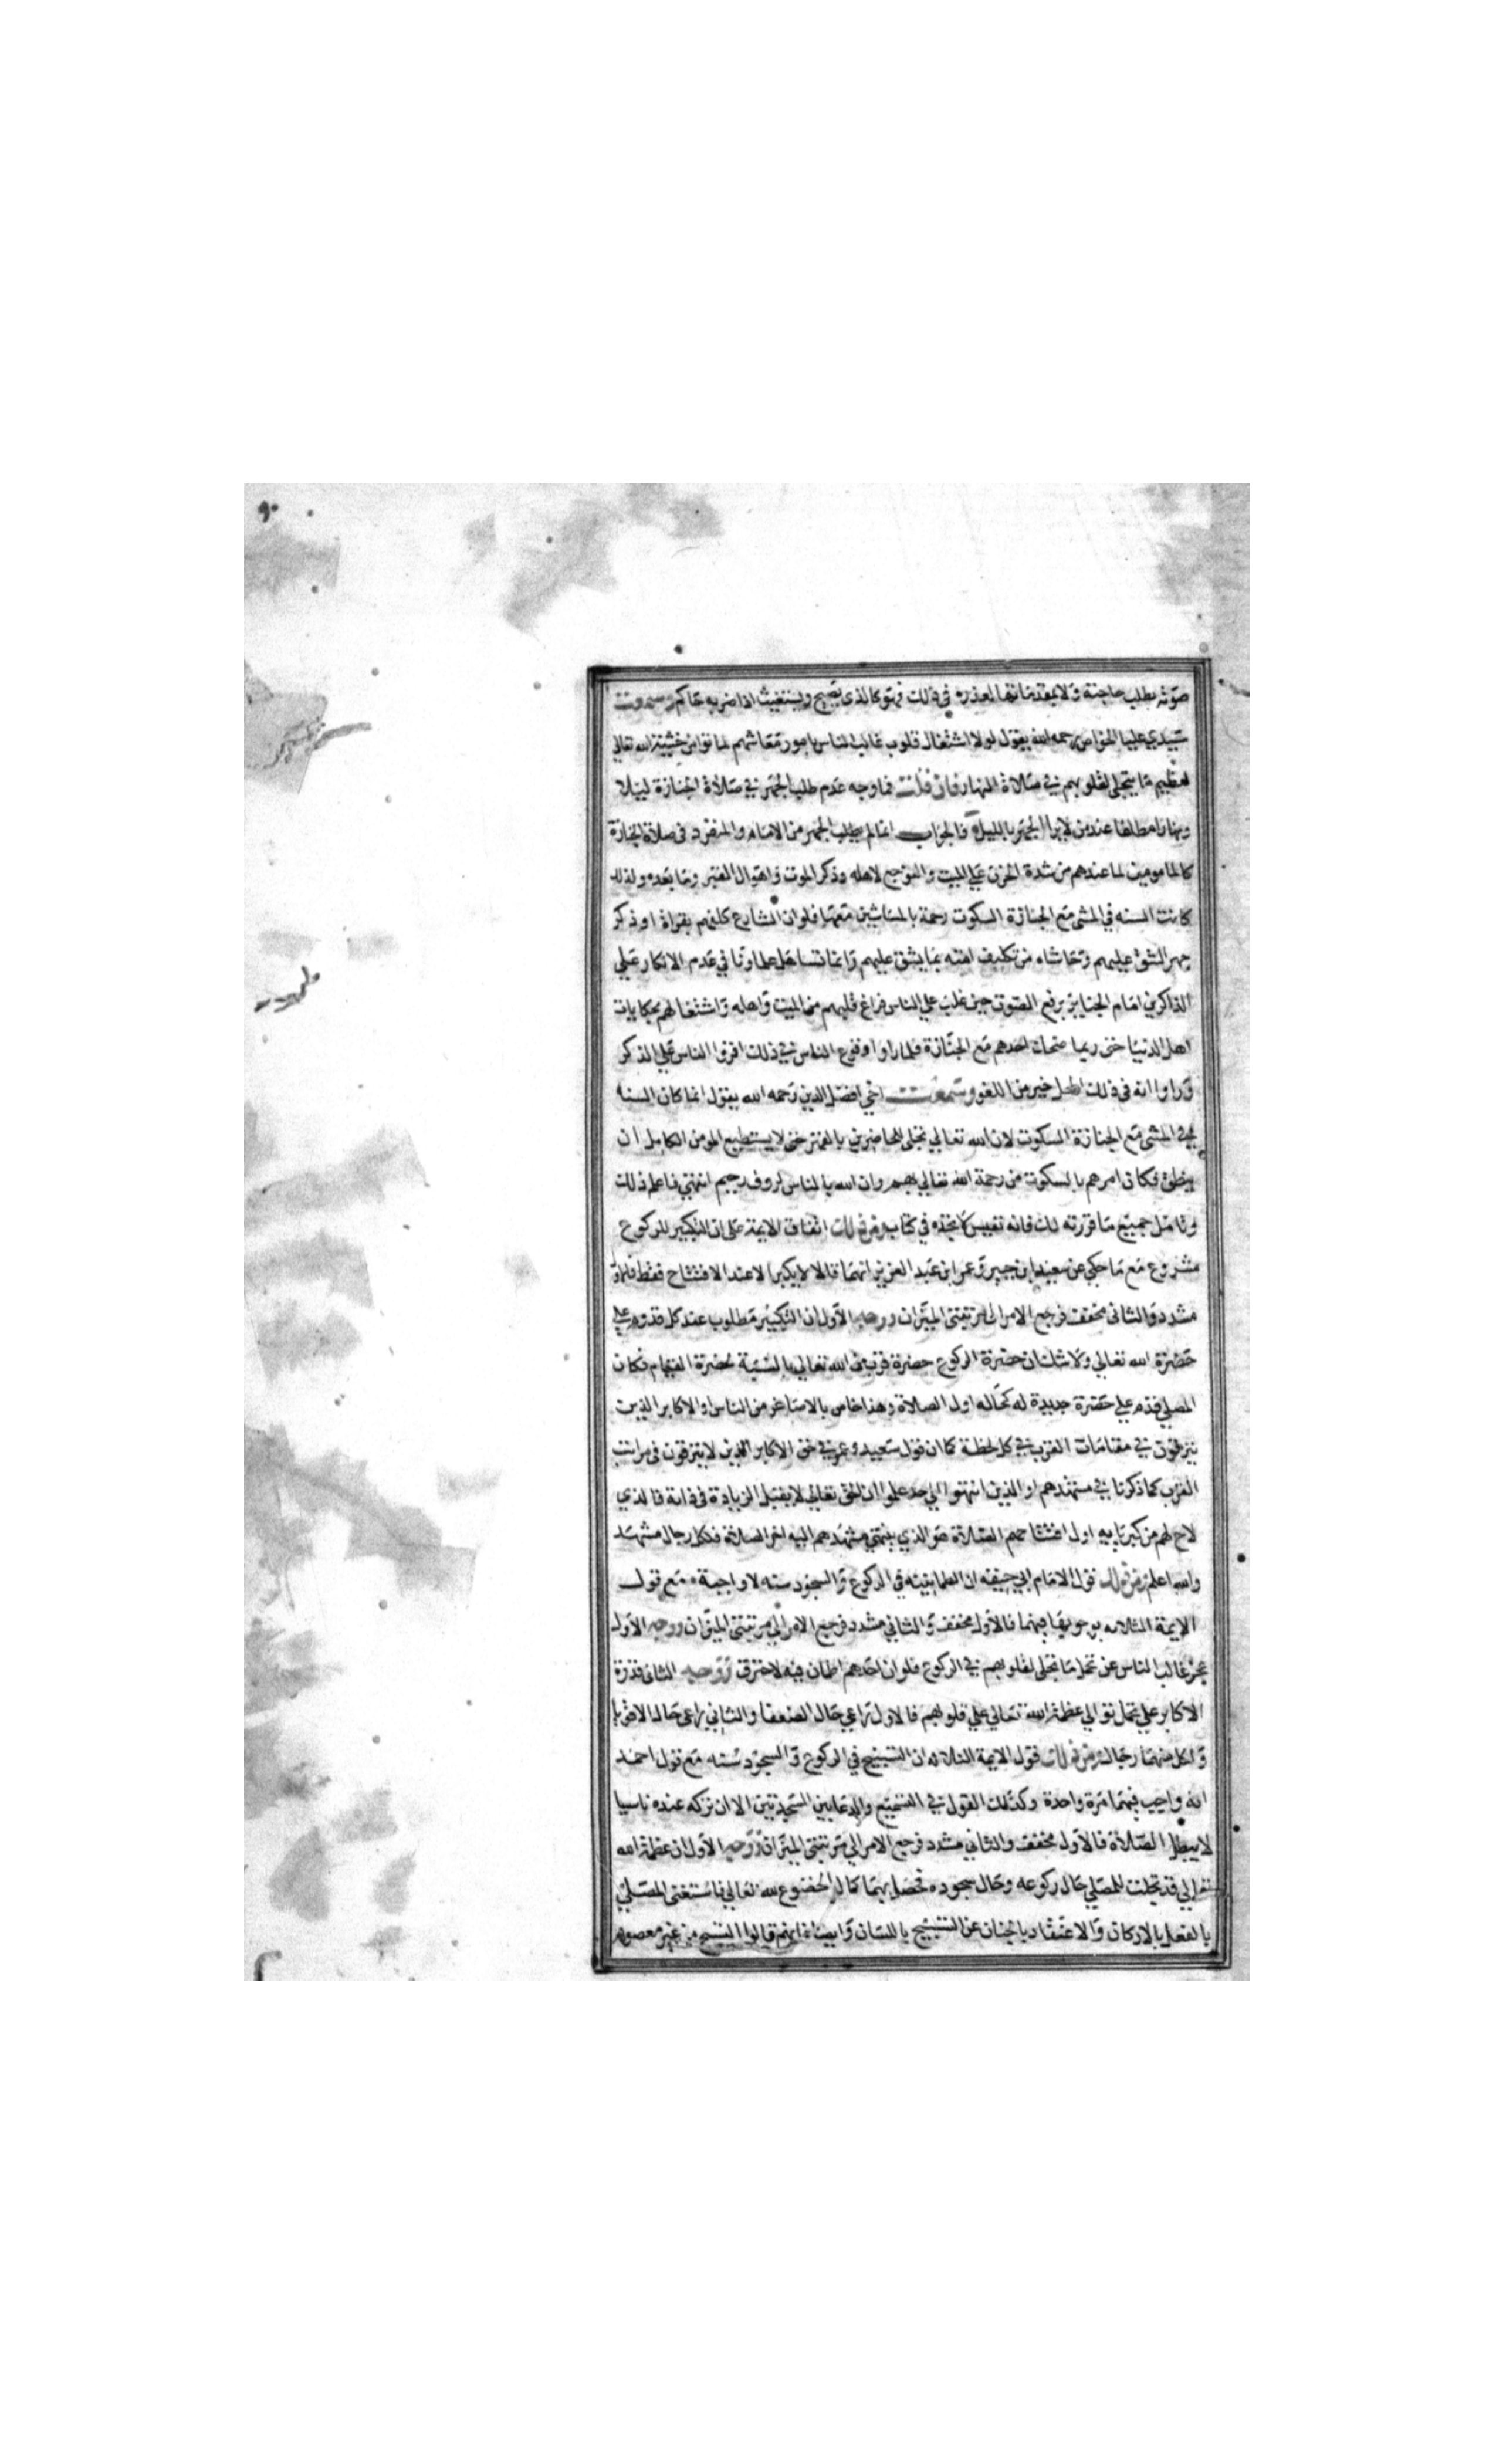 صوته بطلب حاجته ولا يمقت مانها لعذره في ذلك فهو كالذي يصيح ويستغيث اذا ضربه حاكم وسمعت
سيدي عليا الخواص رحمه الله يقول لولا اشتغال قلوب غالب الناس بامور معاشهم لماتوا من خشية الله تعالى
لعظيم ما يتجلى لقلوبهم في صلاة النهار فان قلت فما وجه عدم طلب الجهر في صلاة الجنازة ليلا
ونهارا مطلقا عند من لا يرا الجهر بالليل فالجواب انما لم يطلب الجهر من الامام والمنفرد في صلاة الجنازة
كالمامومين لما عندهم من شدة الحزن علي الميت والتوجع لاهله وذكر الموت واهوال القبر وما بعده ولذلك
كانت السنه في المشي مع الجنازة السكوت رحمة بالماشين معها فلو ان الشارع كلفهم بقراة او ذكر
جهر المشق عليهم وتحاشاه من تكليف امته بما يشق عليهم وانما تساهل علماونا في عدم الانكار علي
الذاكرين امام الجنايز برفع الصوت حين غلب علي الناس فراغ قلبهم من الميت واهله واشتغالهم بحكايات
اهل الدنيا حتى ربما ضحك احدهم مع الجنازة فلما راوا وقوع الناس في ذلك اقروا الناس علي الذكر
وراوا انه في ذلك المحل خير من اللغو وسمعت اخي افضل الدين رحمه الله يقول انما كان السنه
في المشي مع الجنازة السكوت لان الله تعالى تجلى للحاضرين بالقهر حتى لا يستطيع المومن الكامل ان
ينطق فكان امرهم بالسكوت من رحمة الله تعالى بهم وان الله بالناس لروف رحيم انتهى فاعلم ذلك
وتامل جميع ما قررته لك فانه نفيس لا تجده في كتاب ومن ذلك اتفاق الايمة على ان التكبير للركوع
مشروع مع ما حكي عن سعيد ابن جبير وعمر ابن عبد العزيز انهما قالا لا يكبر الا عند الافتتاح فقط فالاول
مشدد والثاني مخفف فرجع الامر الى مرتبتي الميزان ووجه الاول ان التكبير مطلوب عند كل قدوم علي
حضرة الله تعالى ولا شك ان حضرة الركوع حضرة قرب من الله تعالى بالنسبة لحضرة القيام فكان
المصلي قدم علي حضرة جديدة له كحاله اول الصلاة وهذا خاص بالاصاغر من الناس او الاكابر الذين
يترقون في مقامات القرب في كل لحظة كما ان قول سعيد وعمر في حق الاكابر الذين لا يترقون في مراتب
القرب كما ذكرنا في مشهدهم او الذين انتهوا الي حد علموا ان الحق تعالى لا يقبل الزيادة في ذاته فالذي
لاح لهم من كبريايه اول افتتاحهم الصلاة هو الذي ينتهي مشهدهم اليه اخر الصلاة فلكل رجال مشهد
والله اعلم ومن ذلك قول الامام ابي حنيفه ان الطمانينه في الركوع والسجود سنه لا واجبة مع قول
الايمة الثلاثه بوجوبها فيهما فالاول مخفف والثاني مشدد فرجع الامر الي مرتبتي الميزان ووجه الاول
عجز غالب الناس عن تحمل ما تجلى لقلوبهم في الركوع فلو ان احدهم اطمان فيه لاحترق ووجه الثاني قدرة
الاكابر علي تحمل توالي عظمة الله تعالى علي قلوبهم فالاول راعي حال الضعفا والثاني راعى حال الاقويا
ولكل منهما رجال ومن ذلك قول الايمة الثلاثه ان التسبيح في الركوع والسجود سنه مع قول احمد
انه واجب فيهما مرة واحدة وكذلك القول في التسميع والدعا بين السجدتين الا ان تركه عنده ناسيا
لا يبطل الصلاة فالاول مخفف والثاني مشدد فرجع الامر الي مرتبتي الميزان ووجه الاول ان عظمة الله
تعالي قد تجلت للمصلي حال ركوعه وحال سجوده فحصل بهما كمال الخضوع لله تعالي فاستغنى المصلي
بالفعل بالاركان والاعتقاد بالجنان عن التسبيح باللسان وايضا فانهم قالوا التسبيح من غير معصوم